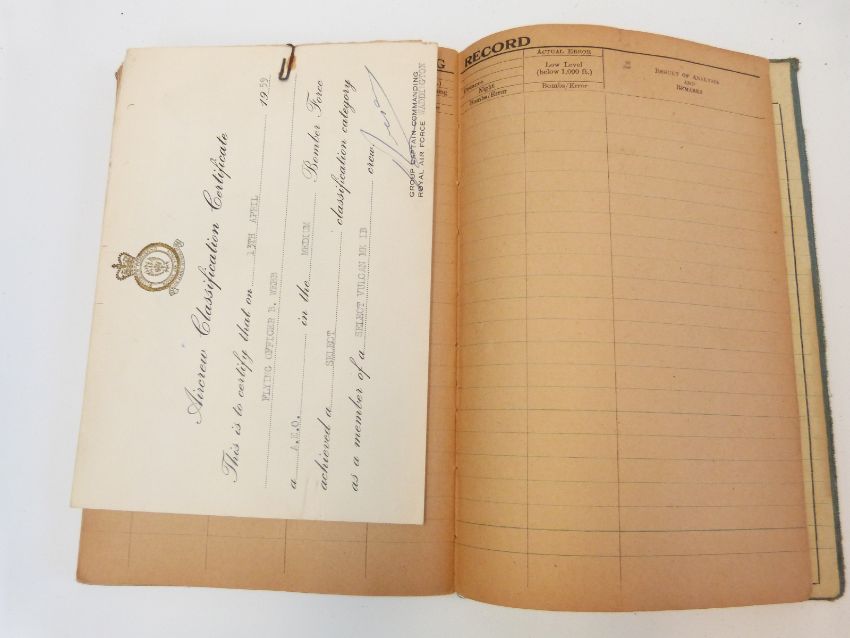 Aircrew Classification Certificate
This is to certify that on 13TH APRIL 19 59
FLYING OFFICER B. WEBB
a A.E.O. in the MEDIUM Bomber Force
achieved a SELECT classification category
as a member of a SELECT VULCAN MK 1B crew.
GROUP CAPTAIN COMMANDING
ROYAL AIR FORCE WADDINGTON
G RECORD
ACTUAL ERROR
Low Level
(below 1,000 ft.)
Night
Bombs/Error
Bombs/Error
RESULT OF ANALYSIS
AND
REMARKS